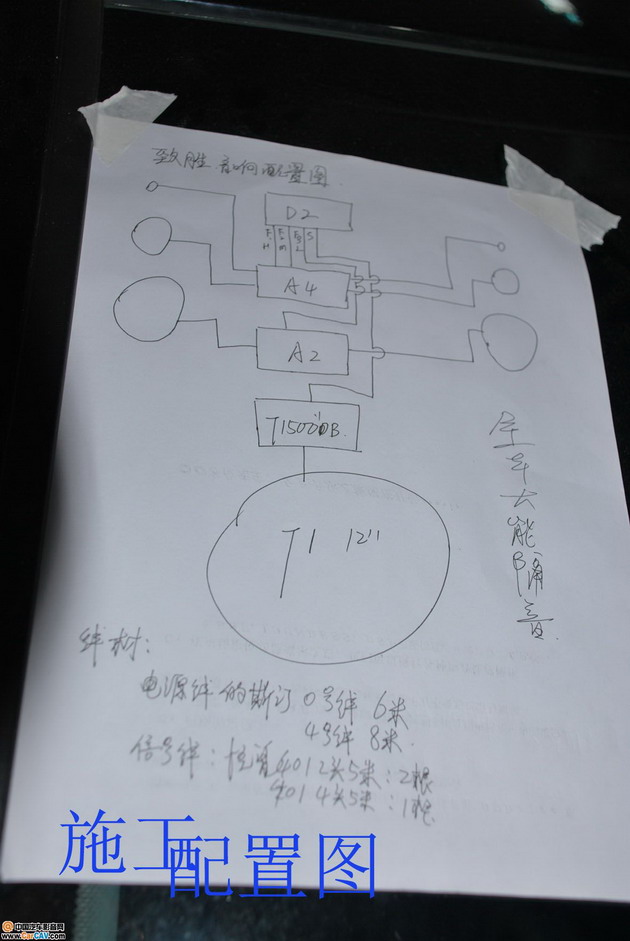 致胜音响配置图
D2
A4
A2
T15000B.
T1 12"
全车大能隔音
线材:
电源线 的斯汀 0号线 6米
4号线 8米.
信号线: 401 2头5米: 2根
401 4头5米: 1根
施工配置图
中国汽车影音网
www.CarCAV.com